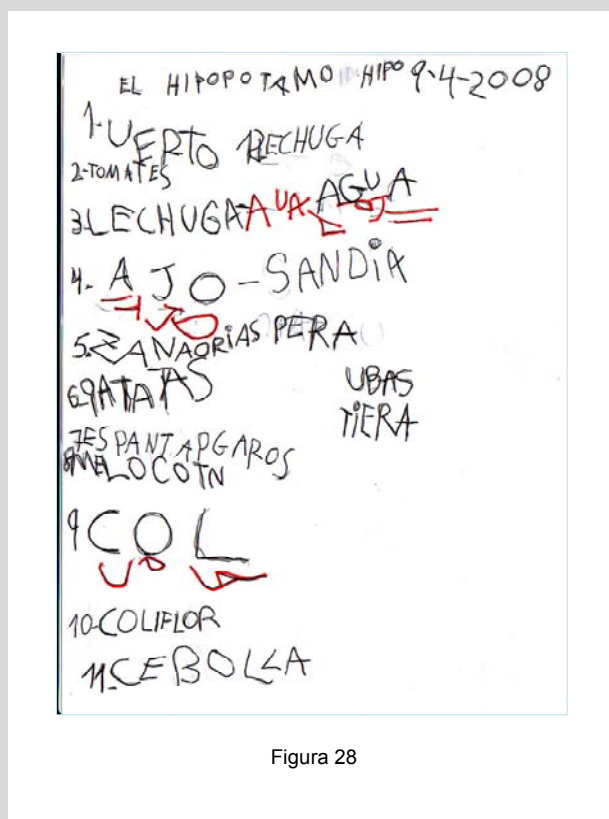 EL HIPOPOTAMO HIPO 9-4-2008
1-UERTO LECHUGA
2-TOMATES
3-LECHUGA-AUA AGUA
4- AJO-SANDiA
AJO
5-ZANAORiAS PERA
6-PATATAS UBAS
TiERA
7ESPANTAPGAROS
8MELOCOTN
9COL
10-COLIFLOR
11-CEBOLLA
Figura 28